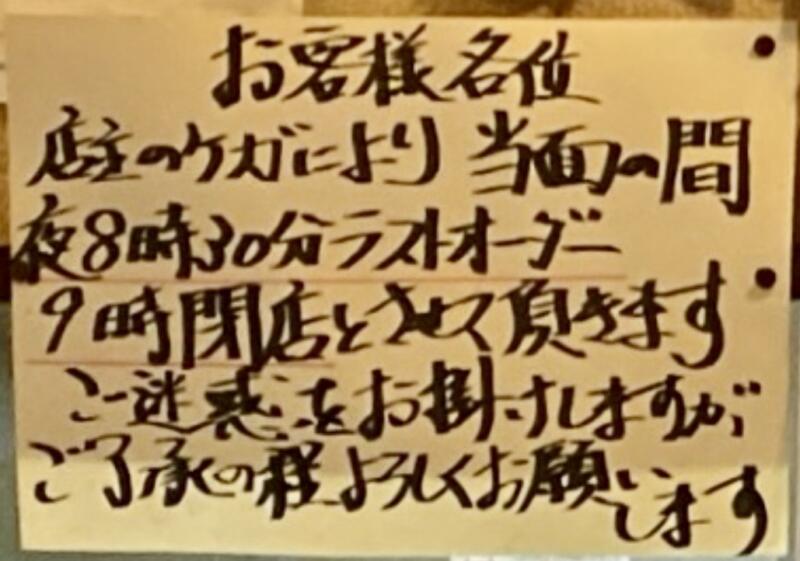 お客様各位
店主のケガにより当面の間
夜8時30分ラストオーダー
9時閉店とさせて頂きます
ご迷惑をお掛けしますが
ご了承の程よろしくお願いします